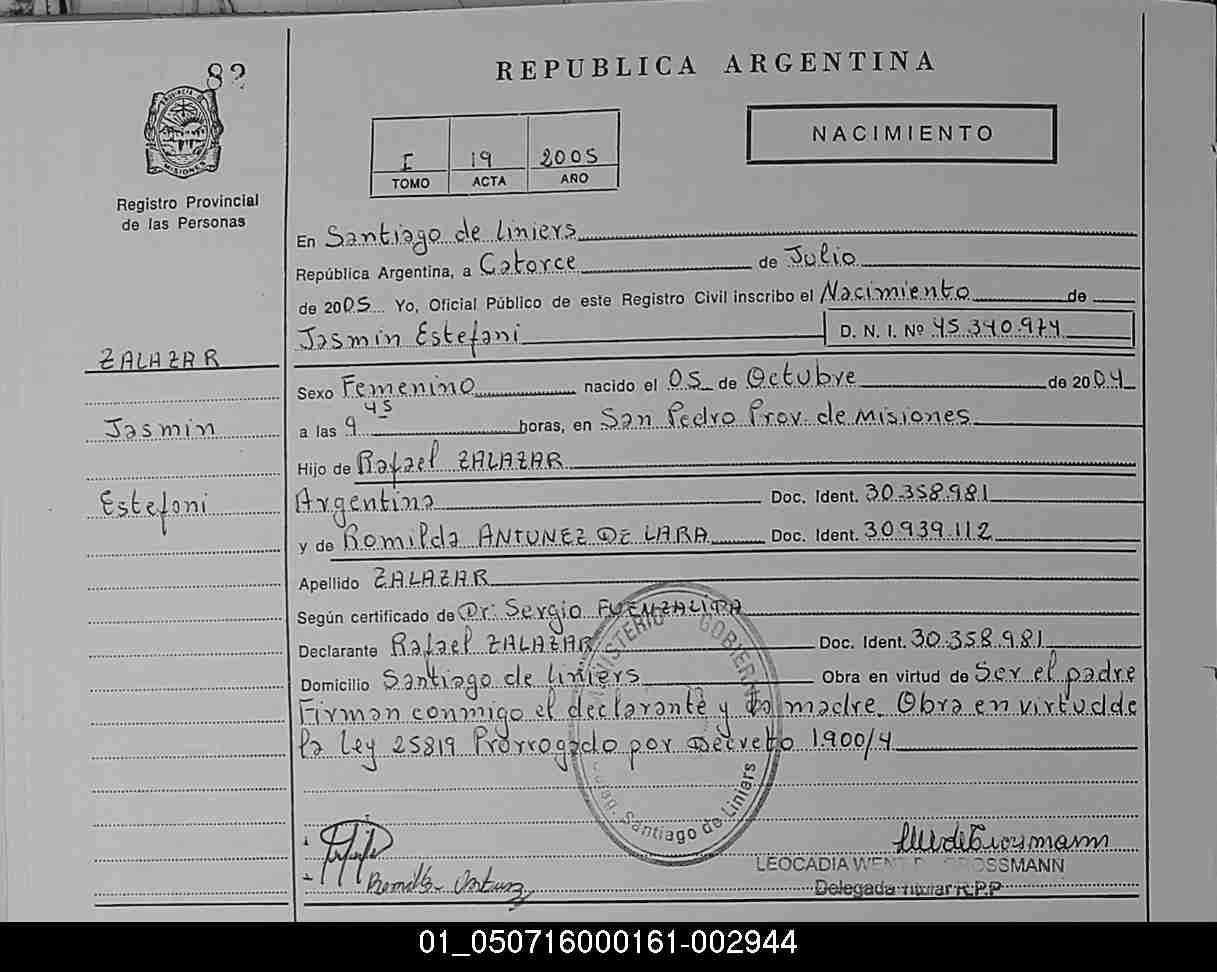 82
REPUBLICA ARGENTINA
PROVINCIA DE
MISIONES
I 19 2005
TOMO ACTA AÑO
NACIMIENTO
Registro Provincial
de las Personas
En Santiago de Liniers
República Argentina, a Catorce de Julio
de 2005 Yo, Oficial Público de este Registro Civil inscribo el Nacimiento de
Jasmin Estefani D. N. I. Nº 45.340.974
ZALAZAR
Jasmin
Estefani
Sexo Femenino nacido el 05 de Octubre de 2004
a las 9 45 horas, en San Pedro Prov. de Misiones
Hijo de Rafael ZALAZAR
Argentina Doc. Ident. 30.358.981
y de Romilda ANTUNEZ DE LARA Doc. Ident. 30.939.112
Apellido ZALAZAR
Según certificado de Dr. Sergio FUENZALIDA
Declarante Rafael ZALAZAR Doc. Ident. 30.358.981
Domicilio Santiago de Liniers Obra en virtud de Ser el padre
Firman conmigo el declarante y la madre. Obra en virtud de
la Ley 25819 Prorrogado por Decreto 1.900/4
MINISTERIO GOBIERNO
Santiago de Liniers
LEOCADIA WENT D. GROSSMANN
Delegada Titular R.P.P
01_050716000161-002944